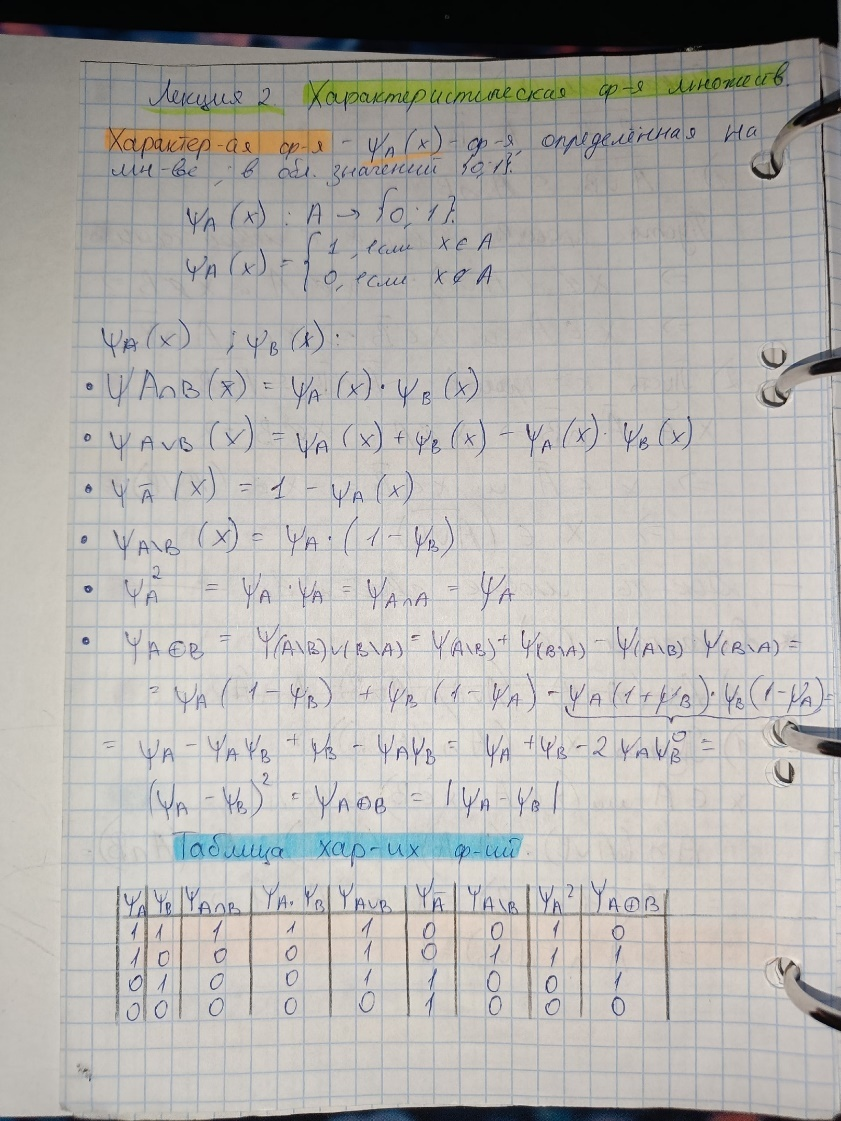 Лекция 2. Характеристическая ф-я множеств.
Характер-ая ф-я - ψ_A(x) - ф-я, определённая на
мн-ве, в обл. значений {0;1}.
ψ_A(x) : A → {0;1}.
ψ_A(x) = { 1, если x ∈ A
0, если x ∉ A
ψ_A(x) ; ψ_B(x):
• ψ_A∩B(x) = ψ_A(x) · ψ_B(x)
• ψ_A∪B(x) = ψ_A(x) + ψ_B(x) - ψ_A(x) · ψ_B(x)
• ψ_Ā(x) = 1 - ψ_A(x)
• ψ_A\B(x) = ψ_A · (1 - ψ_B)
• ψ_A² = ψ_A · ψ_A = ψ_A∩A = ψ_A
• ψ_A⊕B = ψ_(A\B)∪(B\A) = ψ_(A\B) + ψ_(B\A) - ψ_(A\B) · ψ_(B\A) =
= ψ_A(1 - ψ_B) + ψ_B(1 - ψ_A) - ψ_A(1 + ψ_B) · ψ_B(1 - ψ_A) =
0
= ψ_A - ψ_Aψ_B + ψ_B - ψ_Aψ_B = ψ_A + ψ_B - 2ψ_Aψ_B =
(ψ_A - ψ_B)² = ψ_A⊕B = |ψ_A - ψ_B|
Таблица хар-их ф-ий
ψ_A ψ_B ψ_A∩B ψ_A · ψ_B ψ_A∪B ψ_Ā ψ_A\B ψ_A² ψ_A⊕B
1 1 1 1 1 0 0 1 0
1 0 0 0 1 0 1 1 1
0 1 0 0 1 1 0 0 1
0 0 0 0 0 1 0 0 0